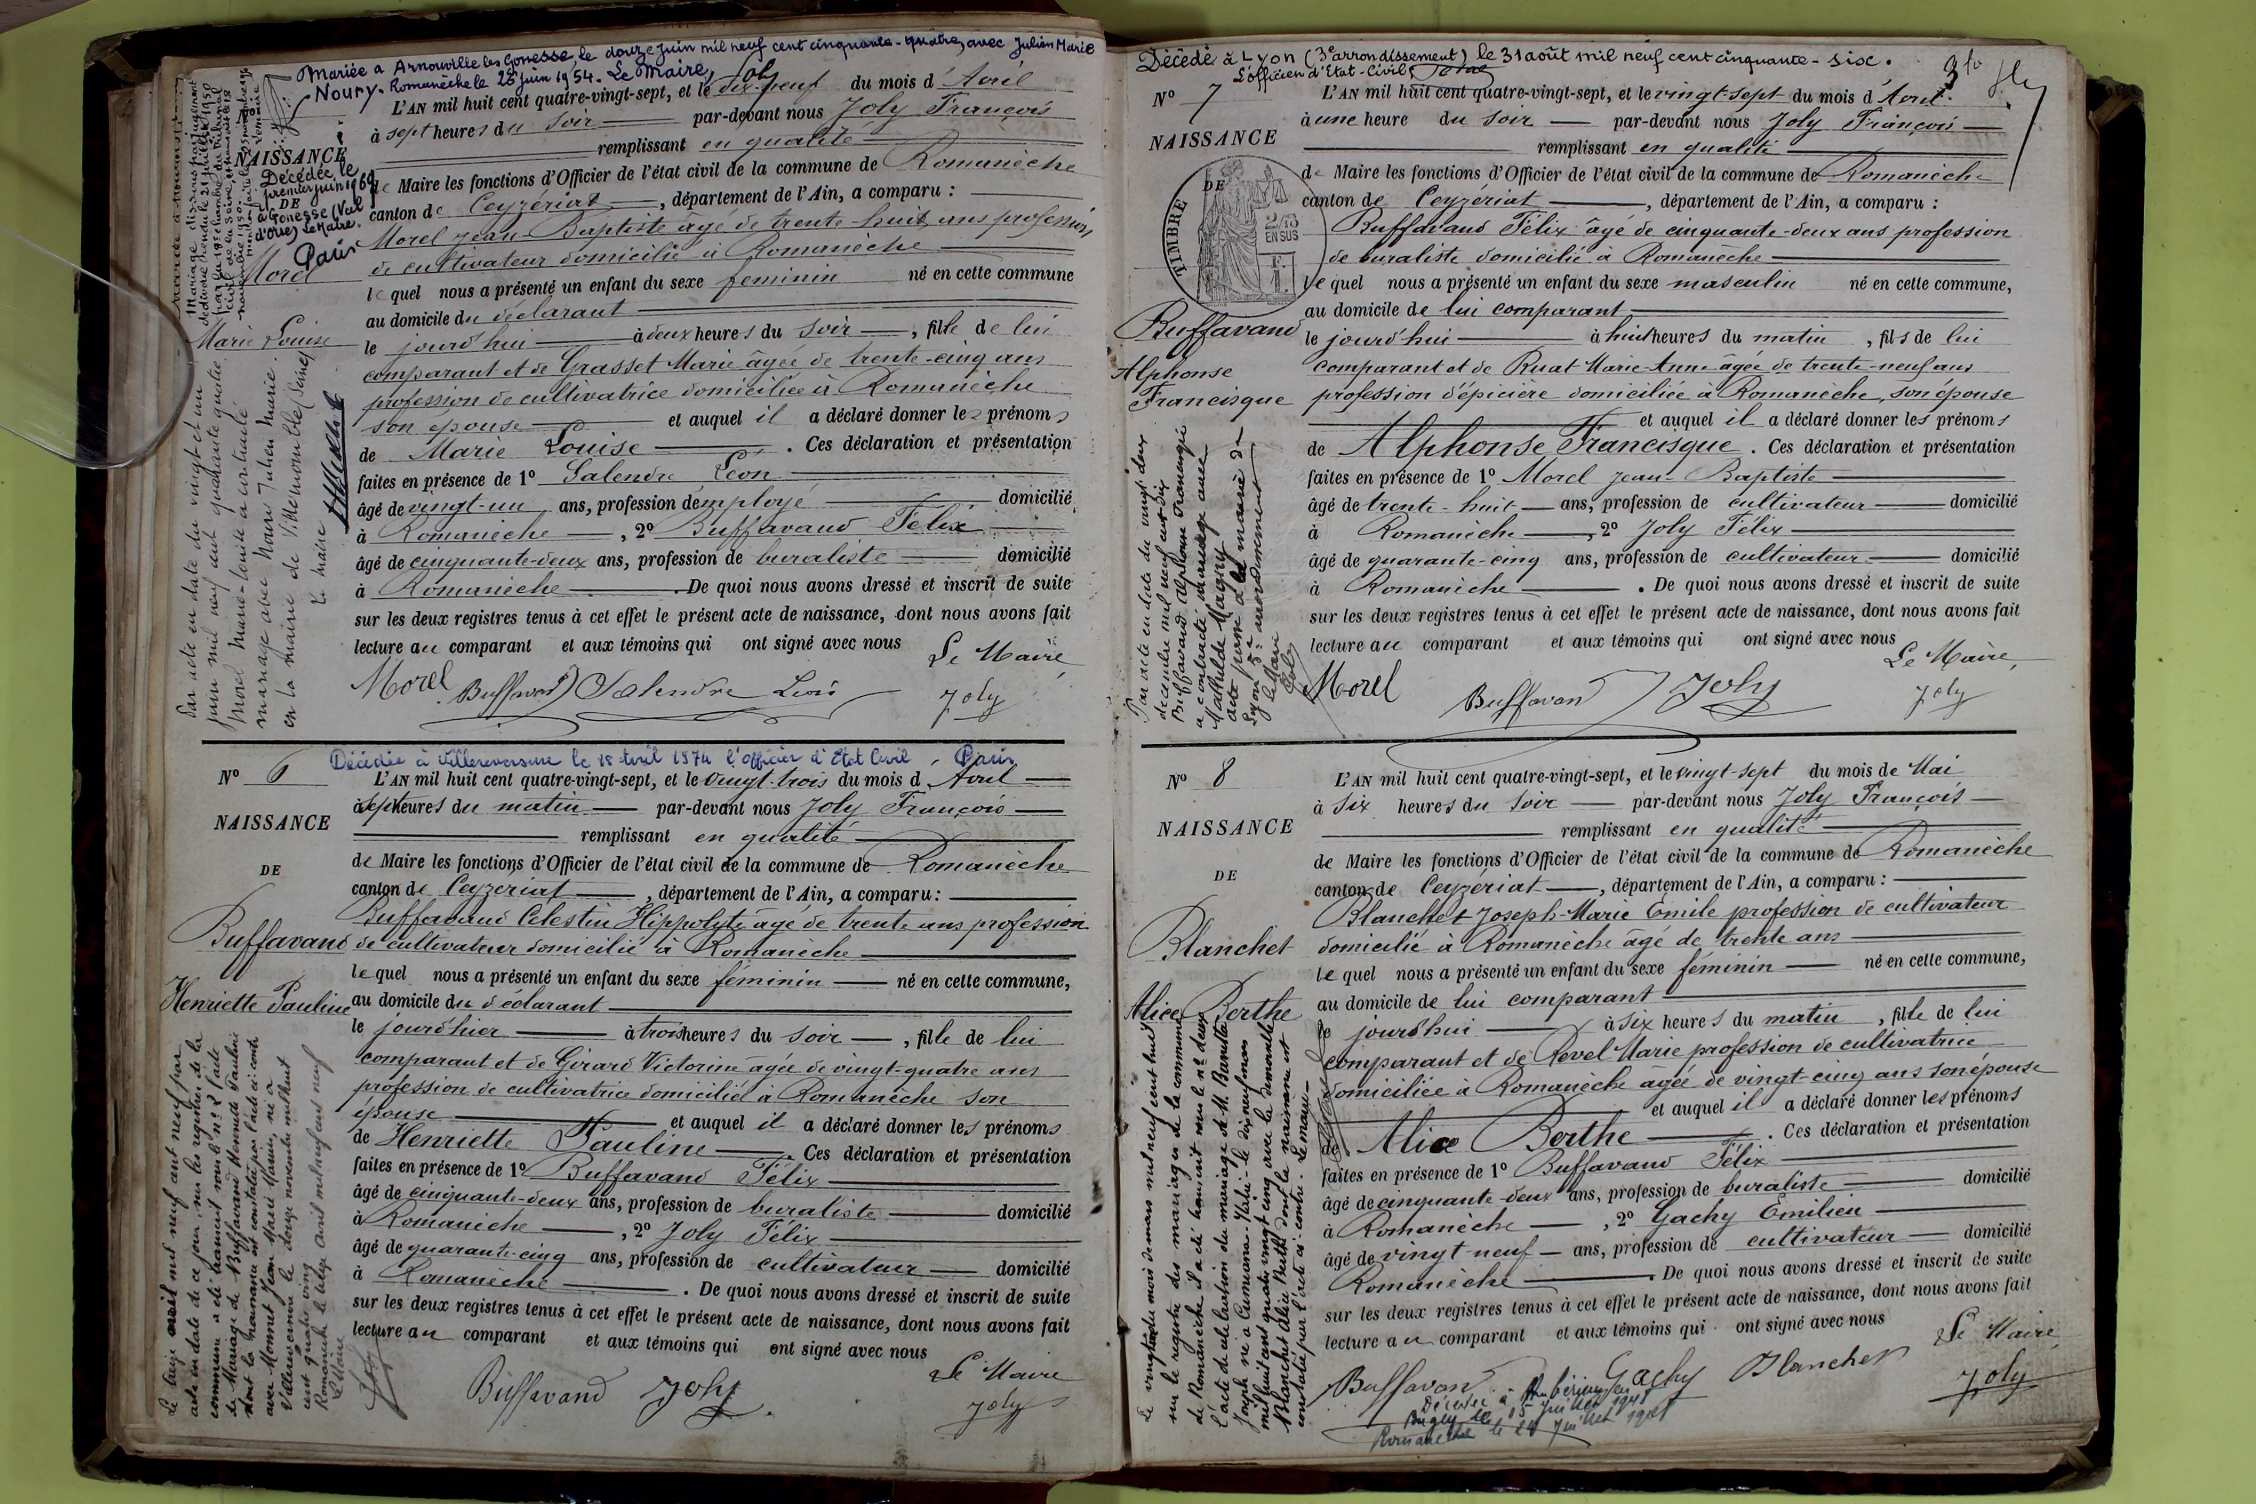 Mariée a Arnouville les Gonesse, le douze Juin mil neuf cent cinquante-quatre, avec Julien Marie
Noury. Romanèche le 25 Juin 1954. Le Maire,
L'AN mil huit cent quatre-vingt-sept, et le dix-neuf du mois d'Avril
à sept heures du soir par-devant nous Joly François
remplissant en qualité
de Maire les fonctions d'Officier de l'état civil de la commune de Romanèche
canton de Ceyzériat, département de l'Ain, a comparu :
NAISSANCE
Décédée le
premier juin 1969
DE
à Gonesse (Val
d'Oise) Le Maire.
Morel
Marie Louise
Morel Jean-Baptiste âgé de trente-huit ans profession
de cultivateur domicilié à Romanèche
lequel nous a présenté un enfant du sexe féminin né en cette commune
au domicile du déclarant
le jourd'hui à deux heures du soir, fille de lui
comparant et de Grasset Marie âgée de trente-cinq ans
profession de cultivatrice domiciliée à Romanèche
son épouse et auquel il a déclaré donner les prénoms
de Marie Louise. Ces déclaration et présentation
faites en présence de 1º Salendre Léon
âgé de vingt-un ans, profession d'employé domicilié
à Romanèche, 2º Buffavand Félix
âgé de cinquante-deux ans, profession de buraliste domicilié
à Romanèche. De quoi nous avons dressé et inscrit de suite
sur les deux registres tenus à cet effet le présent acte de naissance, dont nous avons fait
lecture au comparant et aux témoins qui ont signé avec nous
Le Maire
Morel Buffavand Salendre Léon Joly
Par acte en date du vingt et un
juin mil neuf cent quarante quatre
Morel Marie-Louise a contracté
mariage avec Noury Julien Marie
en la mairie de Villemomble (Seine)
Le maire
Décédée à Villereversure le 18 Avril 1974 l'officier d'Etat Civil
Nº 6
NAISSANCE
DE
Buffavand
Henriette Pauline
L'AN mil huit cent quatre-vingt-sept, et le vingt-trois du mois d'Avril
à sept heures du matin par-devant nous Joly François
remplissant en qualité
de Maire les fonctions d'Officier de l'état civil de la commune de Romanèche
canton de Ceyzériat, département de l'Ain, a comparu :
Buffavand Célestin Hippolyte âgé de trente ans profession
de cultivateur domicilié à Romanèche
lequel nous a présenté un enfant du sexe féminin né en cette commune,
au domicile du déclarant
le jourd'hier à trois heures du soir, fille de lui
comparant et de Girard Victorine âgée de vingt-quatre ans
profession de cultivatrice domiciliée à Romanèche son
épouse et auquel il a déclaré donner les prénoms
de Henriette Pauline. Ces déclaration et présentation
faites en présence de 1º Buffavand Félix
âgé de cinquante-deux ans, profession de buraliste domicilié
à Romanèche, 2º Joly Félix
âgé de quarante-cinq ans, profession de cultivateur domicilié
à Romanèche. De quoi nous avons dressé et inscrit de suite
sur les deux registres tenus à cet effet le présent acte de naissance, dont nous avons fait
lecture au comparant et aux témoins qui ont signé avec nous
Le Maire
Buffavand Joly Joly
Le treize avril mil neuf cent neuf par
acte en date de ce jour, sur les registres de la
commune a été transcrit sous le nº 2 l'acte
de Mariage de Buffavand Henriette Pauline
dont la naissance est constatée par l'acte ci-contre
avec Monnet Jean Marie Marius, né à
Villereversure le douze novembre mil huit
cent quatre vingt
Romanèche le treize avril mil neuf cent neuf
Le Maire
Décédé à Lyon (3e arrondissement) le 31 août mil neuf cent cinquante-six.
L'officier d'Etat-Civil,
Nº 7
NAISSANCE
DE
TIMBRE
EN SUS
Buffavand
Alphonse
Francisque
L'AN mil huit cent quatre-vingt-sept, et le vingt-sept du mois d'Avril
à une heure du soir par-devant nous Joly François
remplissant en qualité
de Maire les fonctions d'Officier de l'état civil de la commune de Romanèche
canton de Ceyzériat, département de l'Ain, a comparu :
Buffavand Félix âgé de cinquante-deux ans profession
de buraliste domicilié à Romanèche
lequel nous a présenté un enfant du sexe masculin né en cette commune,
au domicile de lui comparant
le jourd'hui à huit heures du matin, fils de lui
comparant et de Ruat Marie-Anne âgée de trente-neuf ans
profession d'épicière domiciliée à Romanèche, son épouse
et auquel il a déclaré donner les prénoms
de Alphonse Francisque. Ces déclaration et présentation
faites en présence de 1º Morel Jean-Baptiste
âgé de trente-huit ans, profession de cultivateur domicilié
à Romanèche, 2º Joly Félix
âgé de quarante-cinq ans, profession de cultivateur domicilié
à Romanèche. De quoi nous avons dressé et inscrit de suite
sur les deux registres tenus à cet effet le présent acte de naissance, dont nous avons fait
lecture au comparant et aux témoins qui ont signé avec nous
Le Maire,
Morel Buffavand Joly Joly
Par acte en date du vingt deux
décembre mil neuf cent dix
Buffavand Alphonse Francisque
a contracté mariage avec
Mathilde Magny
Nº 8
NAISSANCE
DE
Blanchet
Alice Berthe
L'AN mil huit cent quatre-vingt-sept, et le vingt-sept du mois de Mai
à six heures du soir par-devant nous Joly François
remplissant en qualité
de Maire les fonctions d'Officier de l'état civil de la commune de Romanèche
canton de Ceyzériat, département de l'Ain, a comparu :
Blanchet Joseph-Marie Emile profession de cultivateur
domicilié à Romanèche âgé de trente ans
lequel nous a présenté un enfant du sexe féminin né en cette commune,
au domicile de lui comparant
le jourd'hui à six heures du matin, fille de lui
comparant et de Revel Marie profession de cultivatrice
domiciliée à Romanèche âgée de vingt-cinq ans son épouse
et auquel il a déclaré donner les prénoms
Alice Berthe. Ces déclaration et présentation
faites en présence de 1º Buffavand Félix
âgé de cinquante-deux ans, profession de buraliste domicilié
à Romanèche, 2º Gachy Emilien
âgé de vingt-neuf ans, profession de cultivateur domicilié
Romanèche. De quoi nous avons dressé et inscrit de suite
sur les deux registres tenus à cet effet le présent acte de naissance, dont nous avons fait
lecture au comparant et aux témoins qui ont signé avec nous
Le Maire
Buffavand Gachy Blanchet Joly
Décédée à Ambérieu en
Bugey le 15 juillet 1948
Romanèche le 24 Juillet 1948
sur le registre des mariages de la commune
de Romanèche il a été transcrit sous le nº deux
l'acte de célébration du mariage de M.
Blanchet Alice Berthe dont la naissance est
constatée par l'acte ci-contre. Le maire